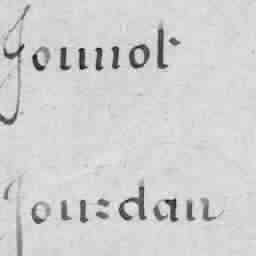 Jounot
Jourdan